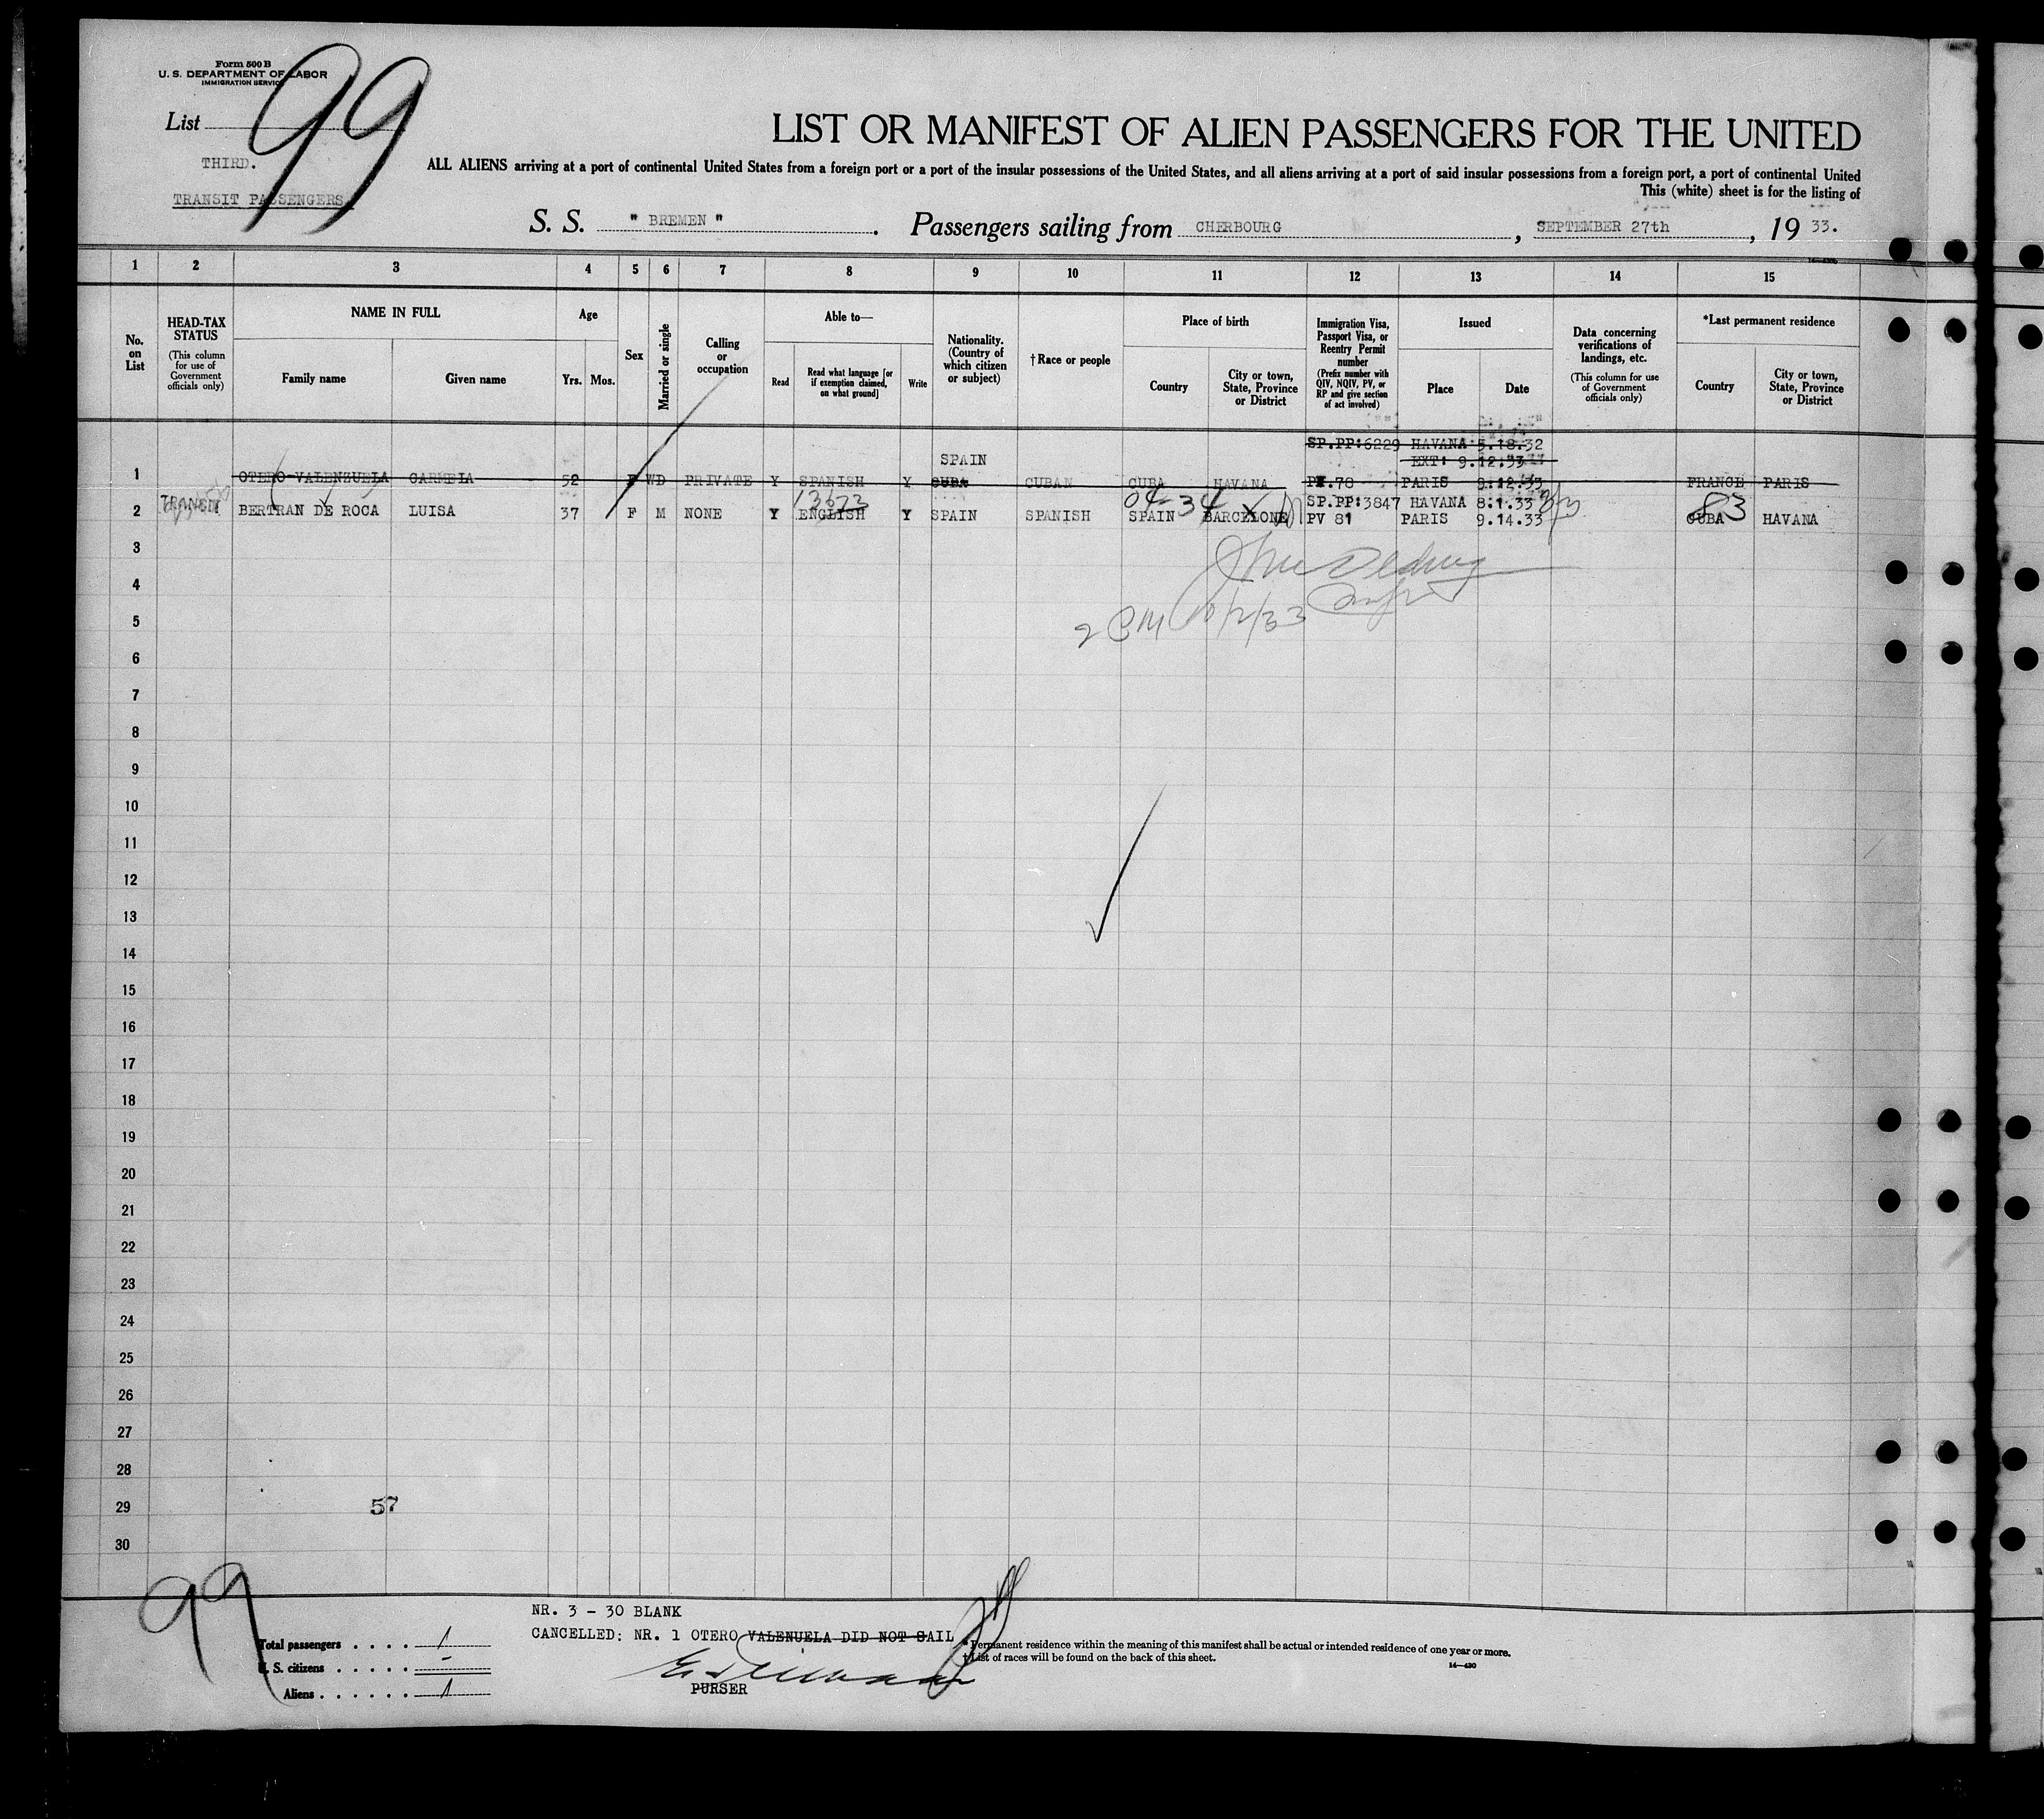 Form 500 B
U. S. DEPARTMENT OF LABOR
IMMIGRATION SERVICE
List 99
THIRD.
TRANSIT PASSENGERS.
LIST OR MANIFEST OF ALIEN PASSENGERS FOR THE UNITED
ALL ALIENS arriving at a port of continental United States from a foreign port or a port of the insular possessions of the United States, and all aliens arriving at a port of said insular possessions from a foreign port, a port of continental United
This (white) sheet is for the listing of
S. S. " BREMEN ". Passengers sailing from CHERBOURG, SEPTEMBER 27th, 19 33.
1 2 3 4 5 6 7 8 9 10 11 12 13 14 15
No. on List
HEAD-TAX STATUS
(This column for use of Government officials only)
NAME IN FULL
Family name
Given name
Age
Yrs.
Mos.
Sex
Married or single
Calling or occupation
Able to—
Read
Read what language [or if exemption claimed, on what ground]
Write
Nationality. (Country of which citizen or subject)
†Race or people
Place of birth
Country
City or town, State, Province or District
Immigration Visa, Passport Visa, or Reentry Permit number
(Prefix number with QIV, NQIV, PV, or RP and give section of act involved)
Issued
Place
Date
Data concerning verifications of landings, etc.
(This column for use of Government officials only)
*Last permanent residence
Country
City or town, State, Province or District
SP.PP:6229 HAVANA 5.18.32
SPAIN EXT: 9.12.33
1 OTERO VALENZUELA CARMELA 52 F WD PRIVATE Y SPANISH Y CUBA CUBAN CUBA HAVANA PV.78 PARIS 9.12.33 FRANCE PARIS
TRANSIT 13673 04-34 SP.PP:3847 HAVANA 8.1.33 83
2 BERTRAN DE ROCA LUISA 37 F M NONE Y ENGLISH Y SPAIN SPANISH SPAIN BARCELONE PV 81 PARIS 9.14.33 CUBA HAVANA
3
4
2 PM 10/2/33
5
6
7
8
9
10
11
12
13
14
15
16
17
18
19
20
21
22
23
24
25
26
27
28
29 57
30
99
NR. 3 - 30 BLANK
CANCELLED: NR. 1 OTERO VALENUELA DID NOT SAIL
Total passengers . . . . 1
U. S. citizens . . . . . -
Aliens . . . . . . 1
PURSER
* Permanent residence within the meaning of this manifest shall be actual or intended residence of one year or more.
† List of races will be found on the back of this sheet.
14—430